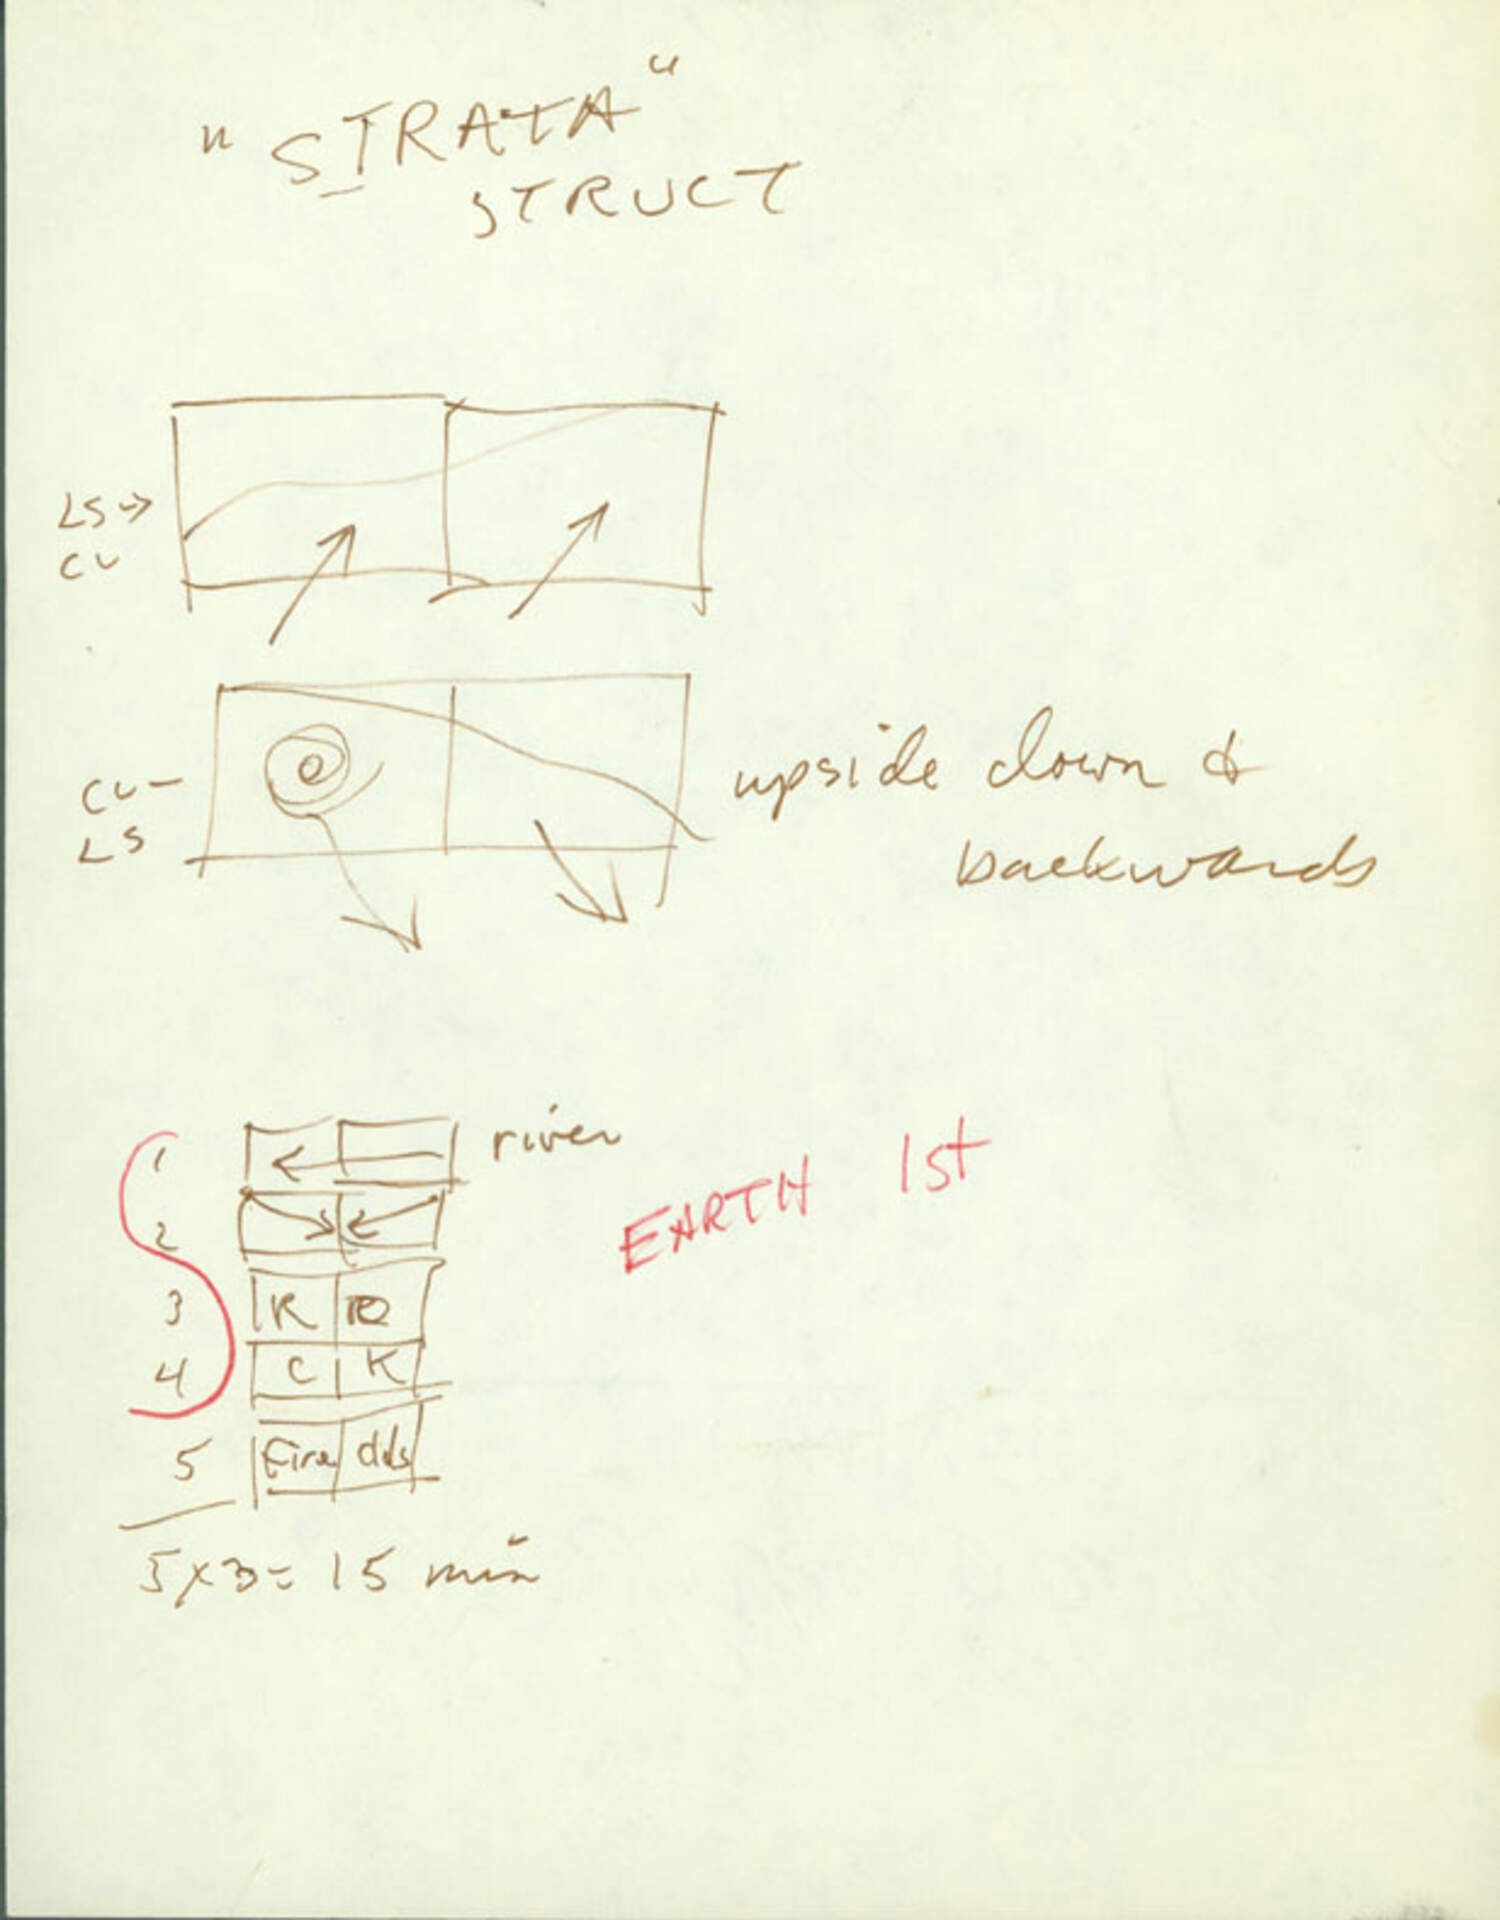 "STRATA"
STRUCT
LS →
CU
CU -
LS
upside down &
backwards
1 river
2
EARTH 1st
3 R
4 C K
5 Fire
5x3= 15 min